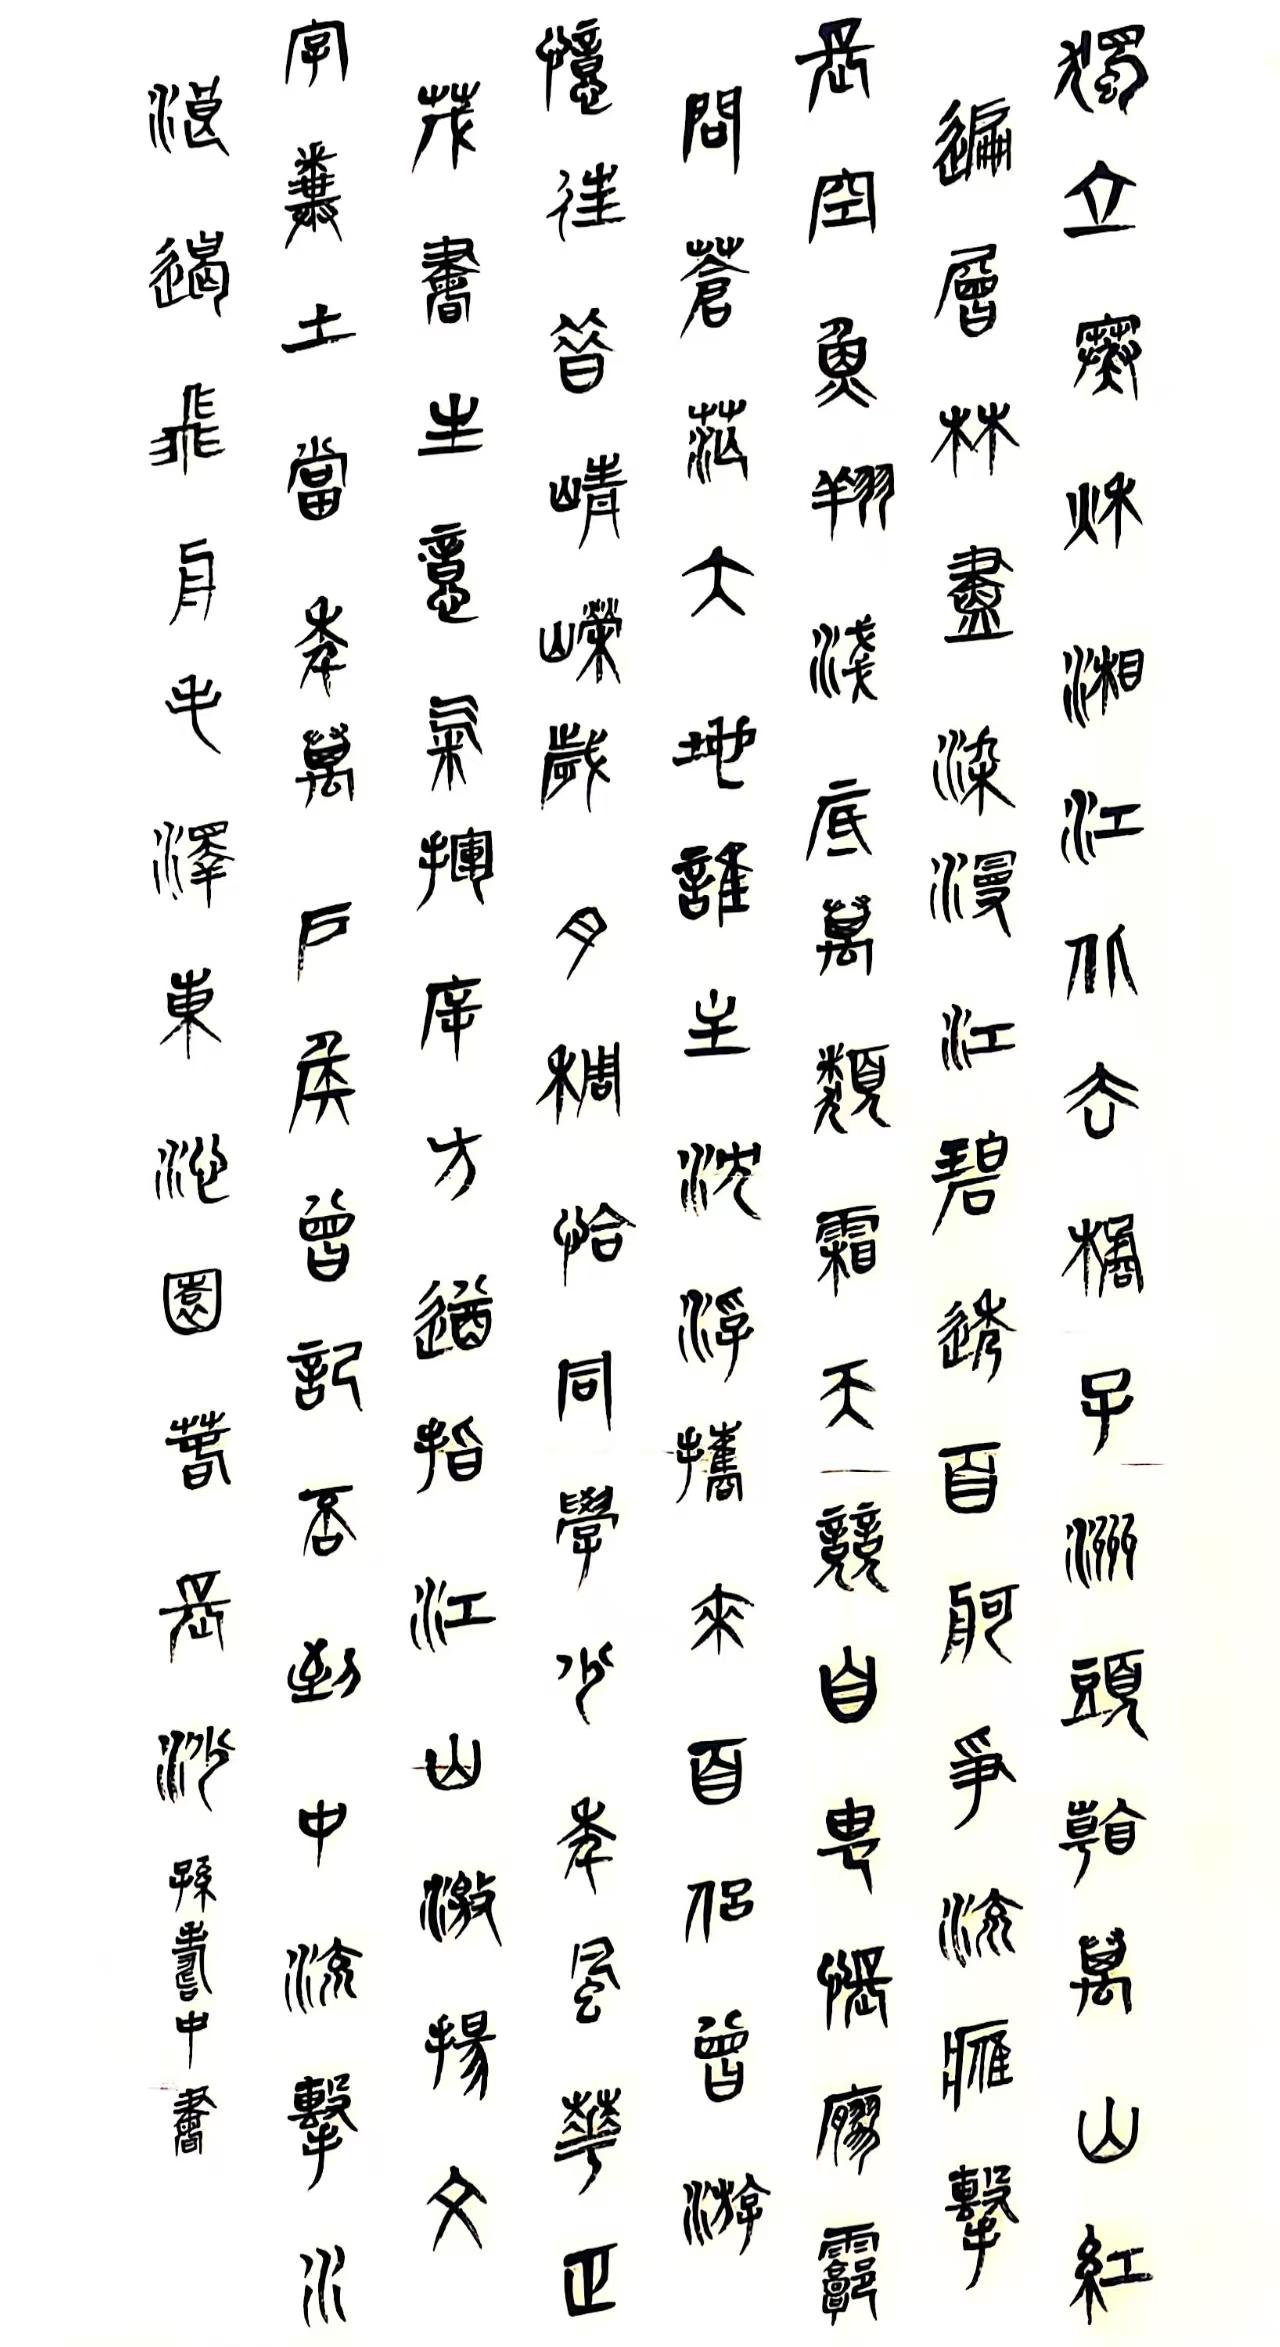 獨立寒秋湘江北去橘子洲頭看萬山紅
遍層林盡染漫江碧透百舸爭流鷹擊
長空魚翔淺底萬類霜天競自由悵廖廓
問蒼茫大地誰主沈浮攜來百侶曾游
憶往昔崢嶸歲月稠恰同學少年風華正
茂書生意氣揮斥方遒指江山激揚文
字糞土當年萬戶侯曾記否到中流擊水
浪遏飛舟毛澤東沁園春長沙孫壽中書